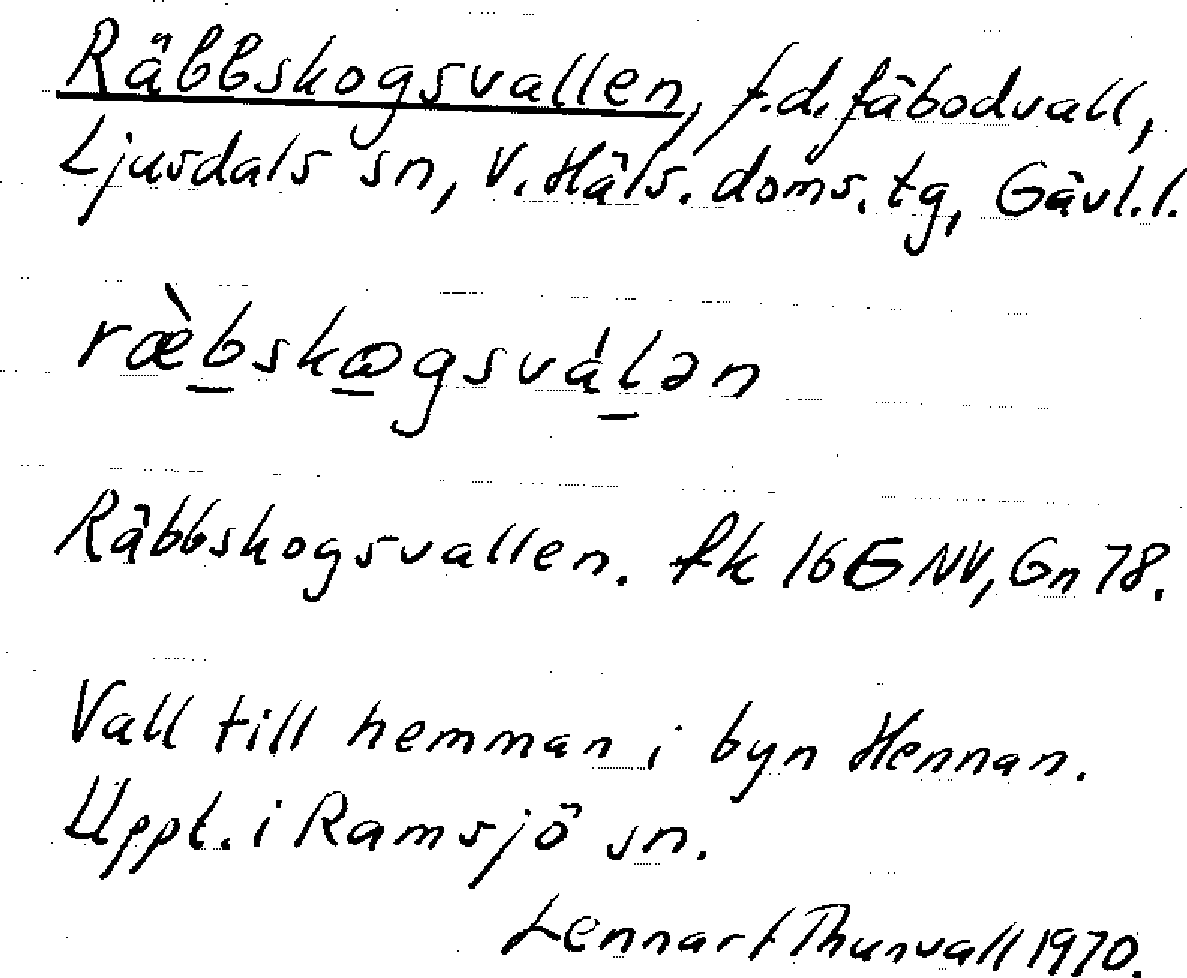 Räbbskogsvallen, f.d. fäbodvall,
Ljusdals sn, V. Häls. doms. tg, Gävl.l.
ræ̀b̲skɷ̲gsvál̲ən
Räbbskogsvallen. fk 16G NV, Gn 78.
Vall till hemman i byn Hennan.
Uppt. i Ramsjö sn.
Lennart Thunvall 1970.